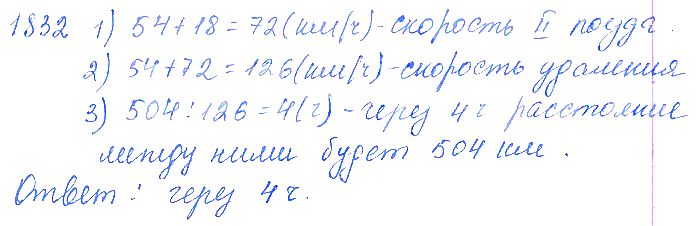 1832 1) 54+18=72(км/ч)-скорость II поезда.
2) 54+72=126(км/ч)-скорость удаления
3) 504:126=4(ч)-через 4ч расстояние
между ними будет 504 км.
Ответ: через 4ч.